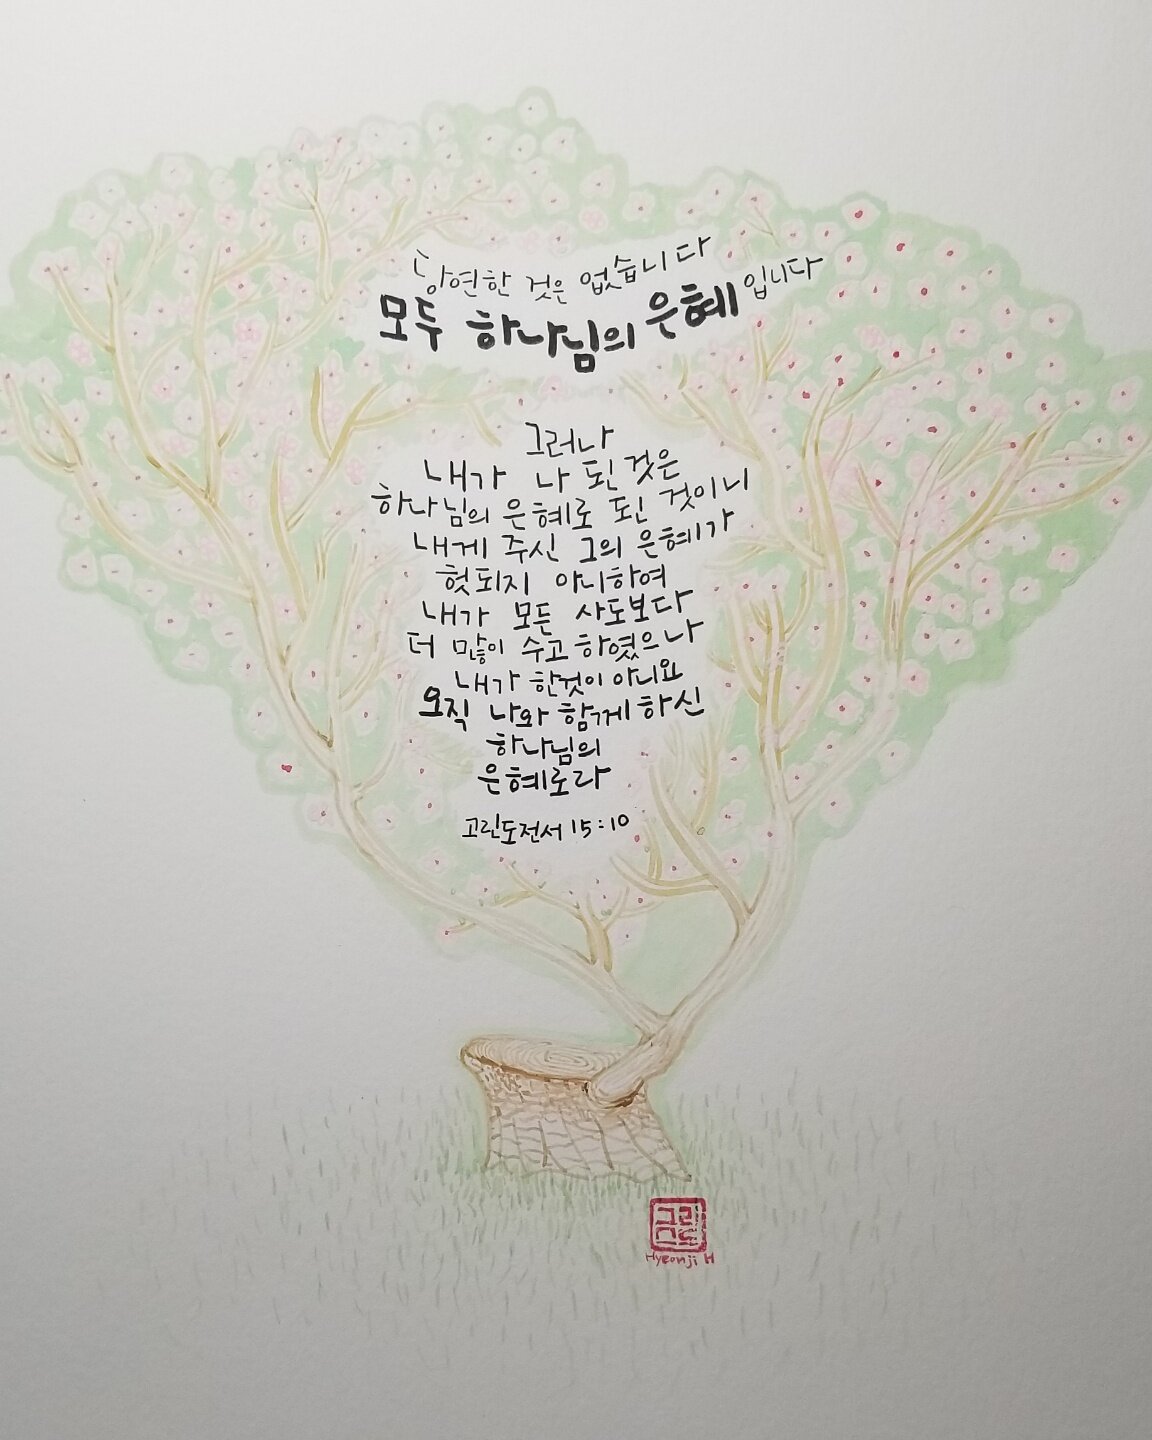 당연한 것은 없습니다
모두 하나님의 은혜입니다
그러나
내가 나 된 것은
하나님의 은혜로 된 것이니
내게 주신 그의 은혜가
헛되지 아니하여
내가 모든 사도보다
더 많이 수고하였으나
내가 한것이 아니요
오직 나와 함께 하신
하나님의
은혜로라
고린도전서 15:10
Hyeonji H